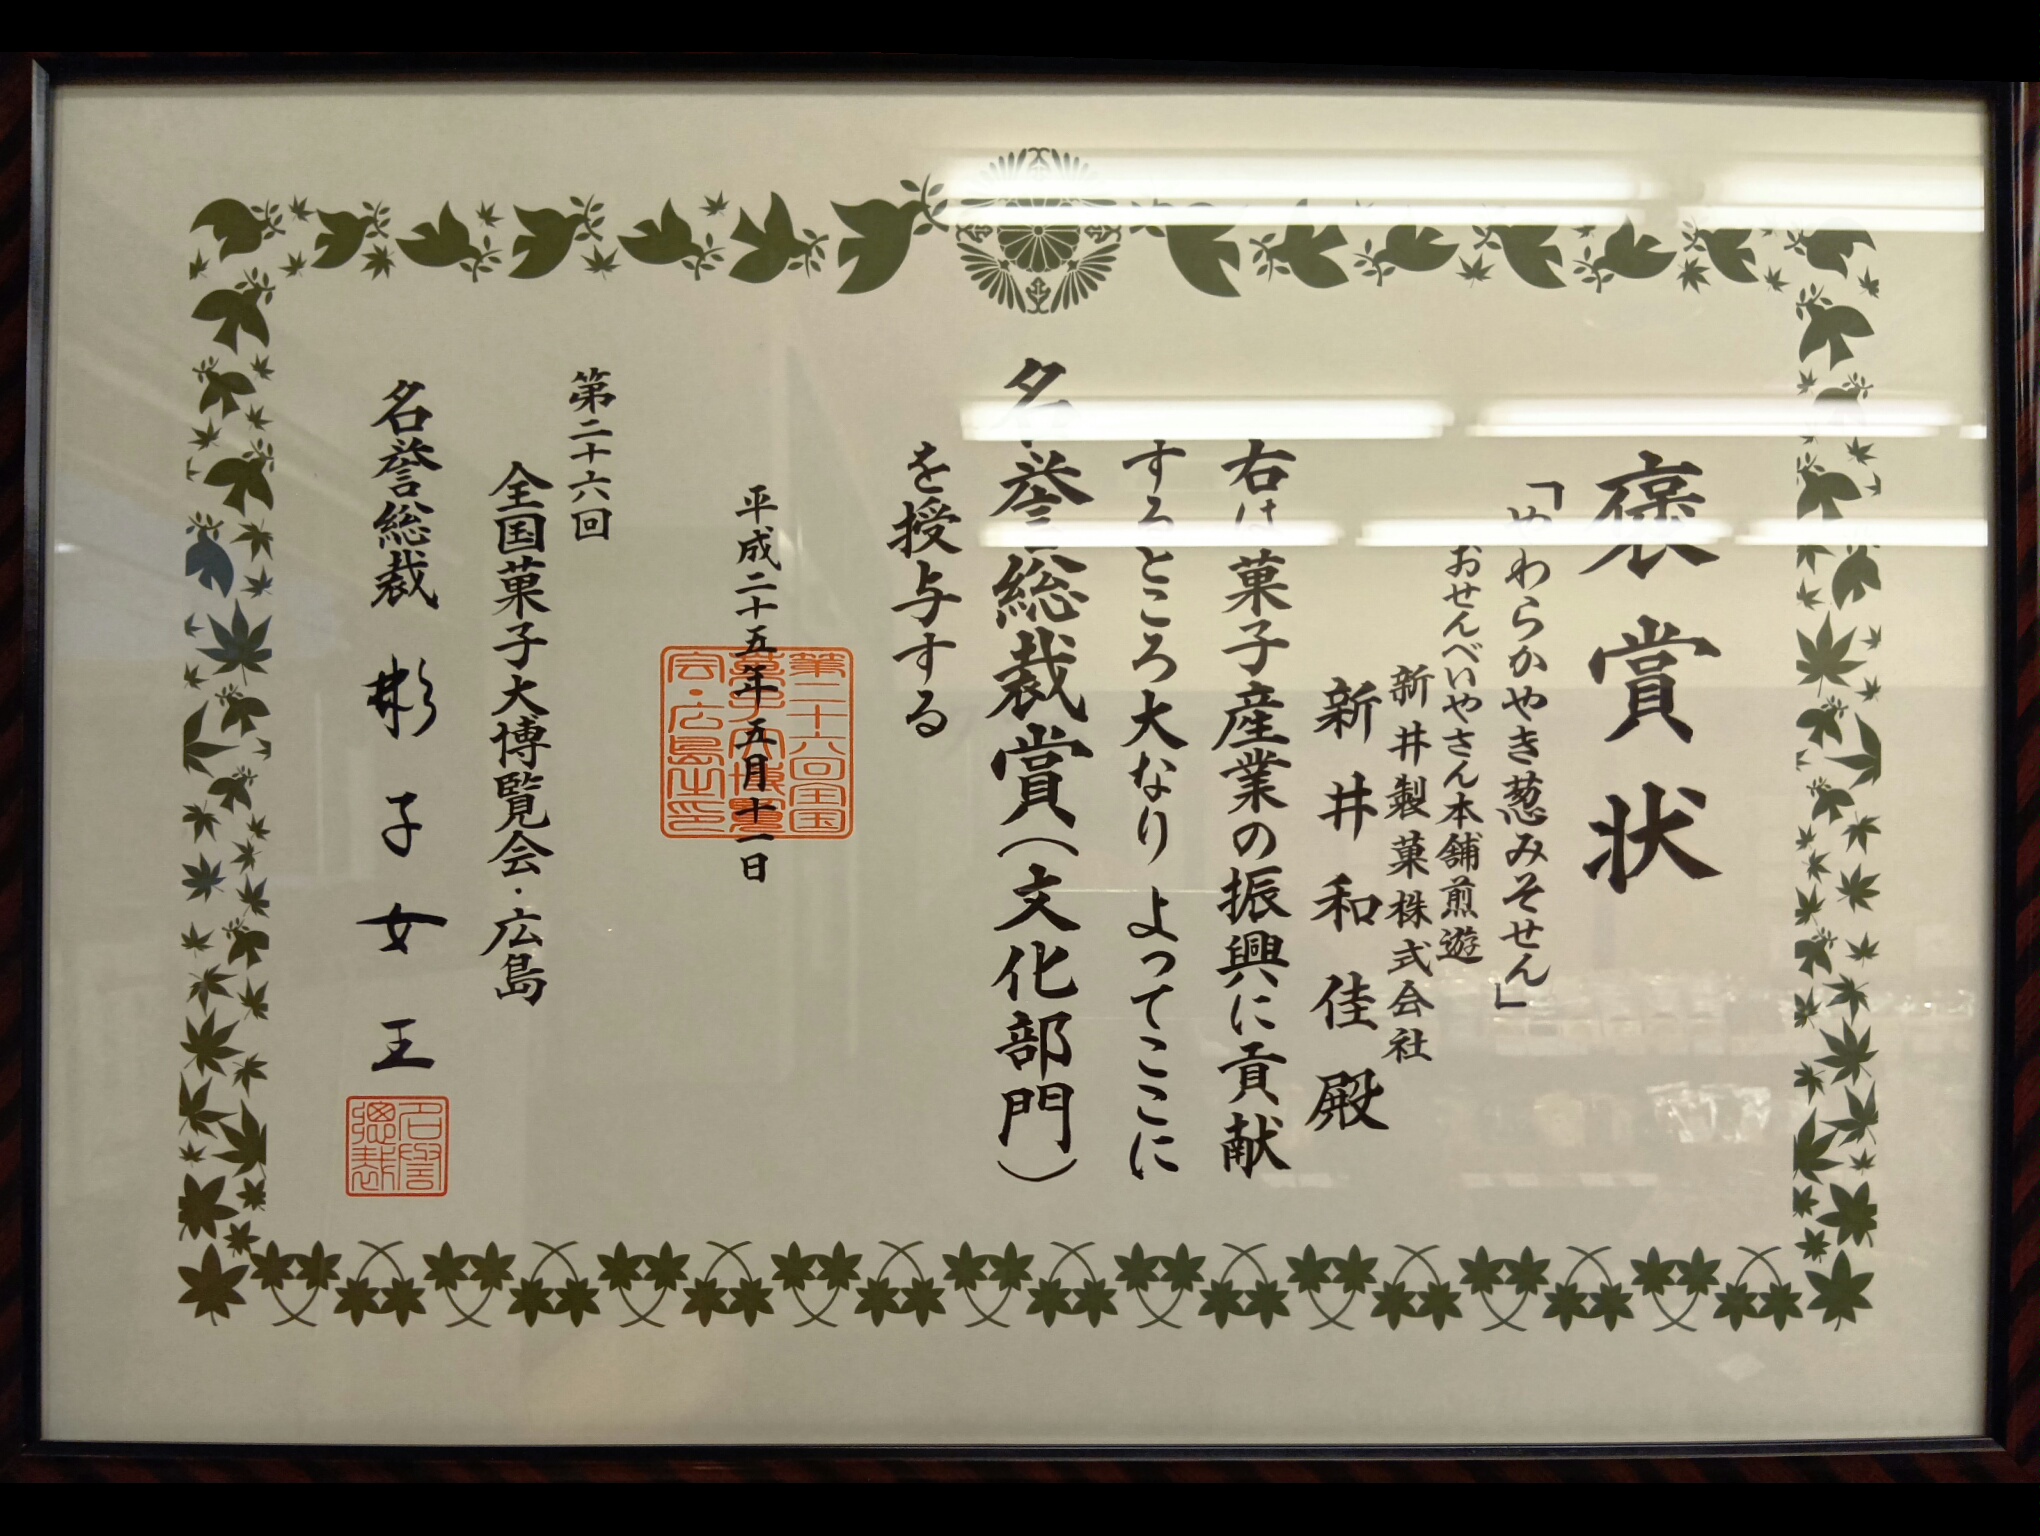 褒賞状
「やわらかやき葱みそせん」
おせんべいやさん本舗煎遊
新井製菓株式会社
新井和佳殿
右は菓子産業の振興に貢献
するところ大なりよってここに
名誉総裁賞(文化部門)
を授与する
平成二十五年五月十一日
第二十六回全国菓子大博覧会・広島之印
第二十六回
全国菓子大博覧会・広島
名誉総裁 彬子女王
名誉總裁